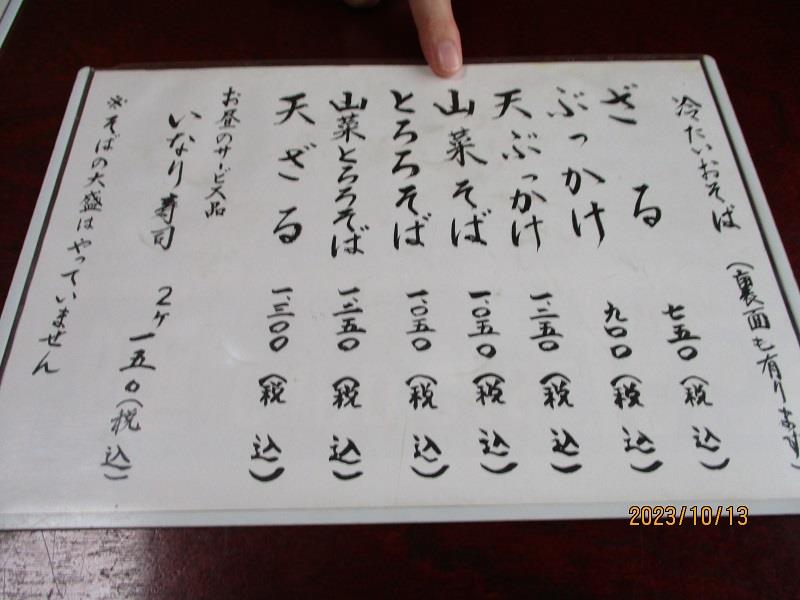 冷たいおそば (裏面も有ります)
ざる 七五〇 (税込)
ぶっかけ 九〇〇 (税込)
天ぶっかけ 一、二五〇 (税込)
山菜そば 一、〇五〇 (税込)
とろろそば 一、〇五〇 (税込)
山菜とろろそば 一、二五〇 (税込)
天ざる 一、三〇〇 (税込)
お昼のサービス品
いなり寿司 2ヶ 一五〇 (税込)
※そばの大盛はやっていません
2023/10/13